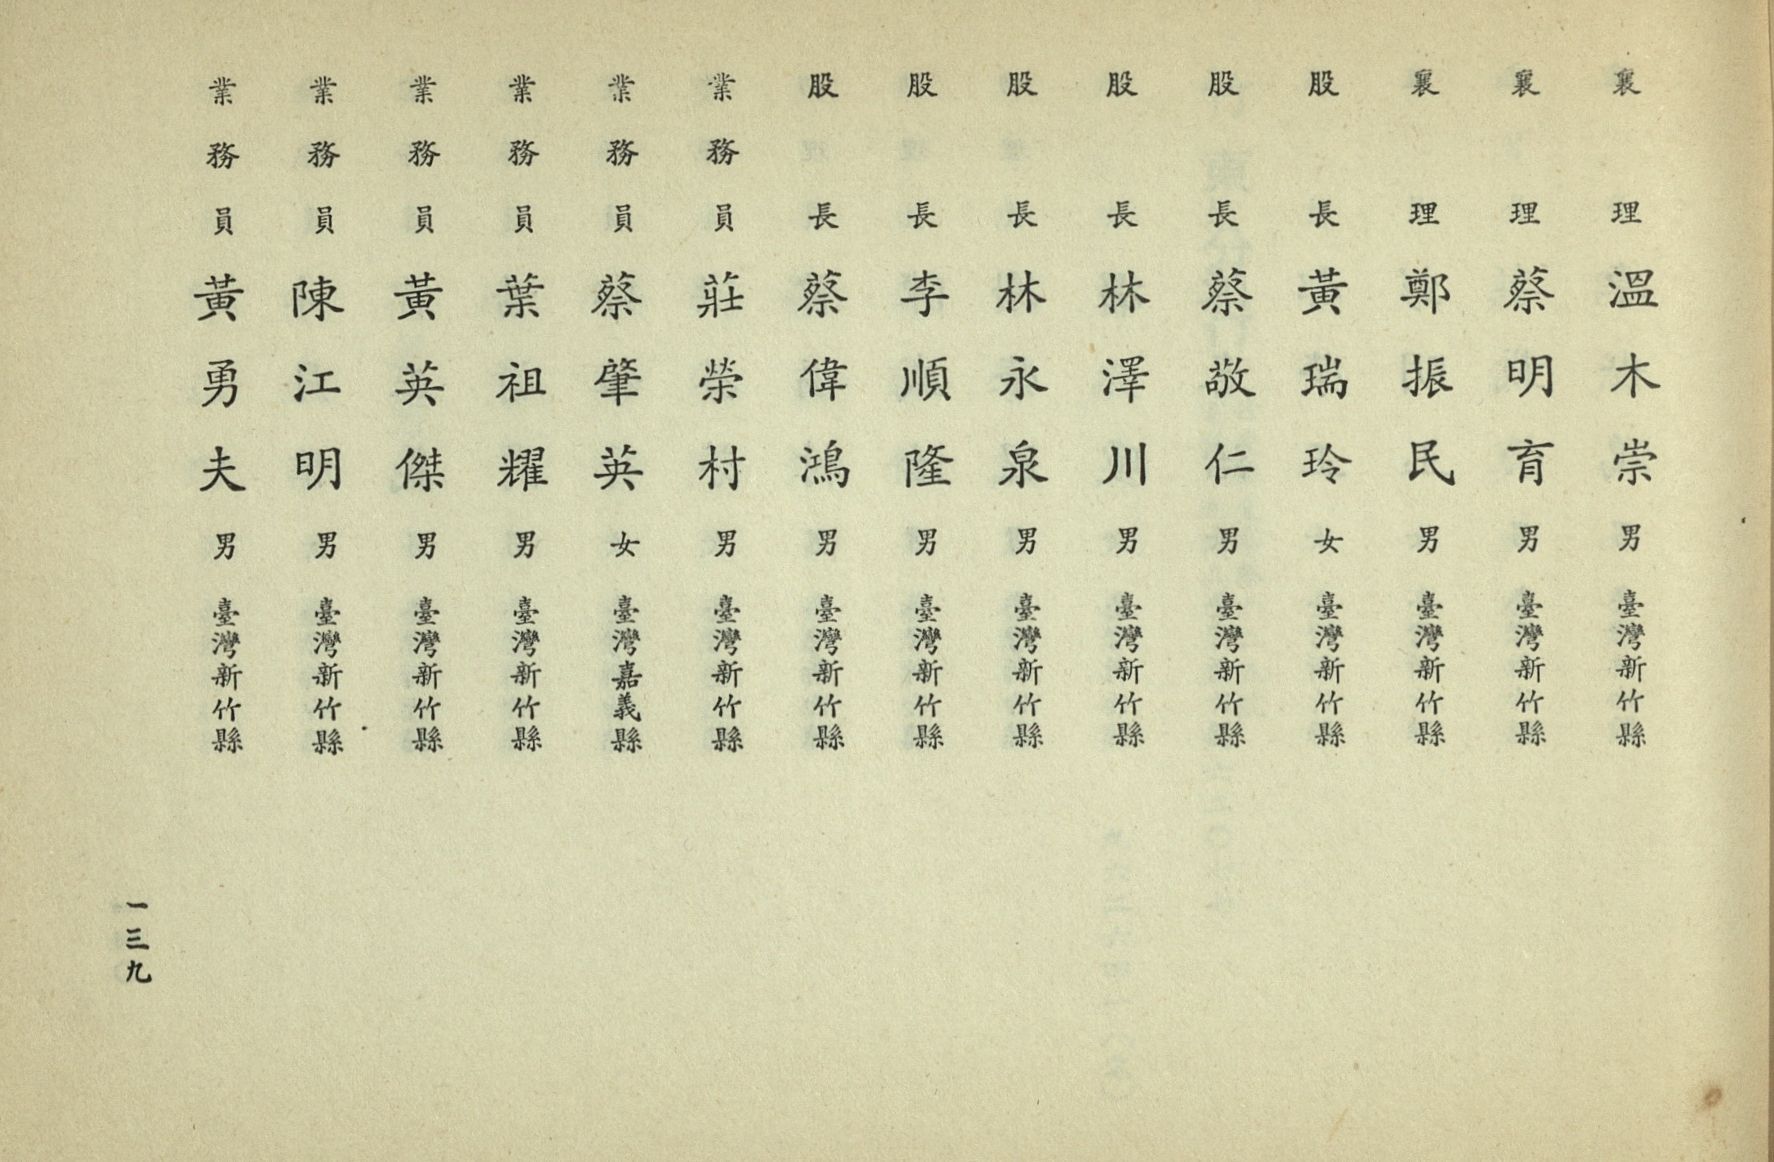 襄理溫木崇男臺灣新竹縣
襄理蔡明育男臺灣新竹縣
襄理鄭振民男臺灣新竹縣
股長黃瑞玲女臺灣新竹縣
股長蔡敬仁男臺灣新竹縣
股長林澤川男臺灣新竹縣
股長林永泉男臺灣新竹縣
股長李順隆男臺灣新竹縣
股長蔡偉鴻男臺灣新竹縣
業務員莊榮村男臺灣新竹縣
業務員蔡肇英女臺灣嘉義縣
業務員葉祖耀男臺灣新竹縣
業務員黃英傑男臺灣新竹縣
業務員陳江明男臺灣新竹縣
業務員黃勇夫男臺灣新竹縣
一三九